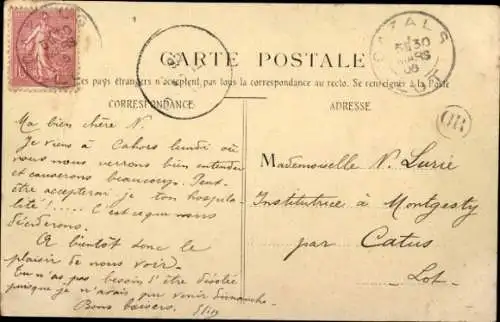 CARTE POSTALE
Ces pays étrangers n'acceptent pas tous la correspondance au recto. Se renseigner à la Poste
CORRESPONDANCE
ADRESSE
CAZALS
MARS
OR
Ma bien chère N.
Je viens à Cahors lundi où
nous nous verrons bien entendu
et causerons beaucoup. Peut-
être accepterai je ton hospita-
lité !..... C'est ce que nous
déciderons.
A bientôt donc le
plaisir de nous voir.
Tu n'as pas besoin d'être désolée
puisque je n'avais pu venir dimanche.
Bons baisers.
Mademoiselle N. Lurie
Institutrice à Montgesty
par Catus
Lot.